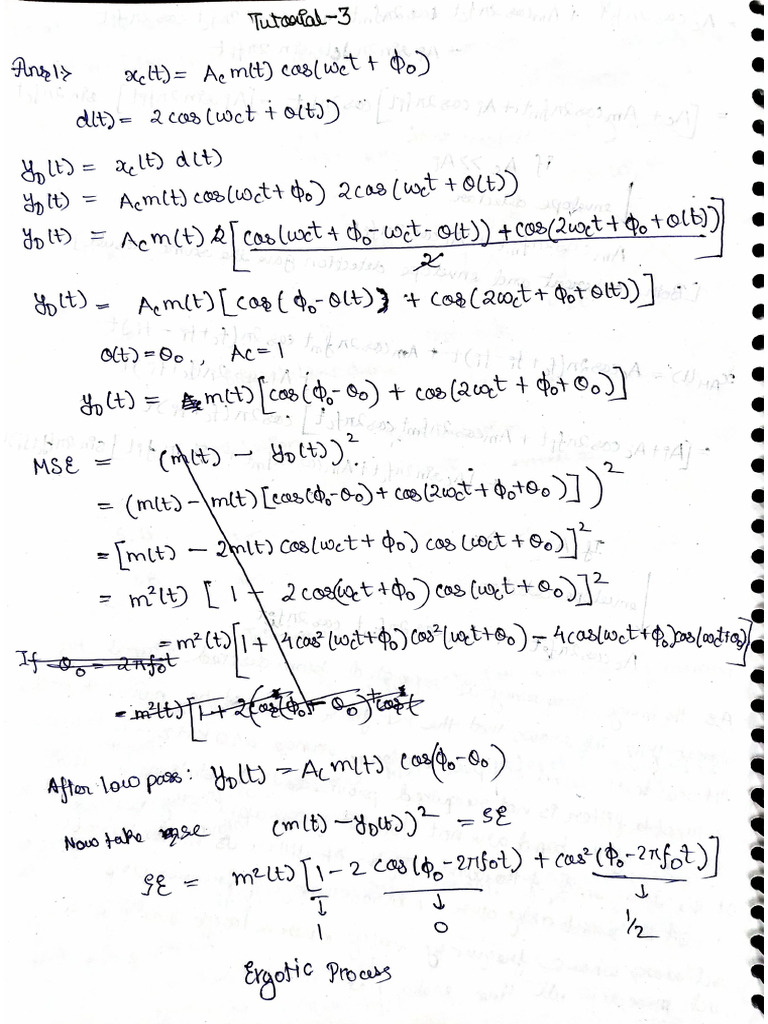 Tutorial-3
Ans1> xc(t) = Ac m(t) cos(ωct + ϕ0)
d(t) = 2 cos(ωct + θ(t))
yD(t) = xc(t) d(t)
yD(t) = Ac m(t) cos(ωct + ϕ0) 2cos(ωct + θ(t))
yD(t) = Ac m(t) 2[cos(ωct + ϕ0 - ωct - θ(t)) + cos(2ωct + ϕ0 + θ(t))]
2
yD(t) = Ac m(t) [cos(ϕ0 - θ(t)) + cos(2ωct + ϕ0 + θ(t))]
θ(t) = θ0 , Ac = 1
yD(t) = m(t) [cos(ϕ0 - θ0) + cos(2ωct + ϕ0 + θ0)]
MSE = (m(t) - yD(t))².
= (m(t) - m(t) [cos(ϕ0-θ0) + cos(2ωct + ϕ0 + θ0)])²
= [m(t) - 2m(t) cos(ωct + ϕ0) cos(ωct + θ0)]²
= m²(t) [1 - 2cos(ωct + ϕ0) cos(ωct + θ0)]²
= m²(t) [1 + 4cos²(ωct+ϕ0) cos²(ωct+θ0) - 4cos(ωct+ϕ0) cos(ωct+θ0)]
If θ0 = 2πf0t
= m²(t) [1 + 2(cos(ϕ0 - θ0) + cos(
After low pass: yD(t) = Ac m(t) cos(ϕ0-θ0)
Now take (m(t) - yD(t))² = SE
SE = m²(t) [1 - 2 cos(ϕ0 - 2πf0t) + cos²(ϕ0 - 2πf0t)]
↓ ↓ ↓
1 0 1/2
Ergotic Process